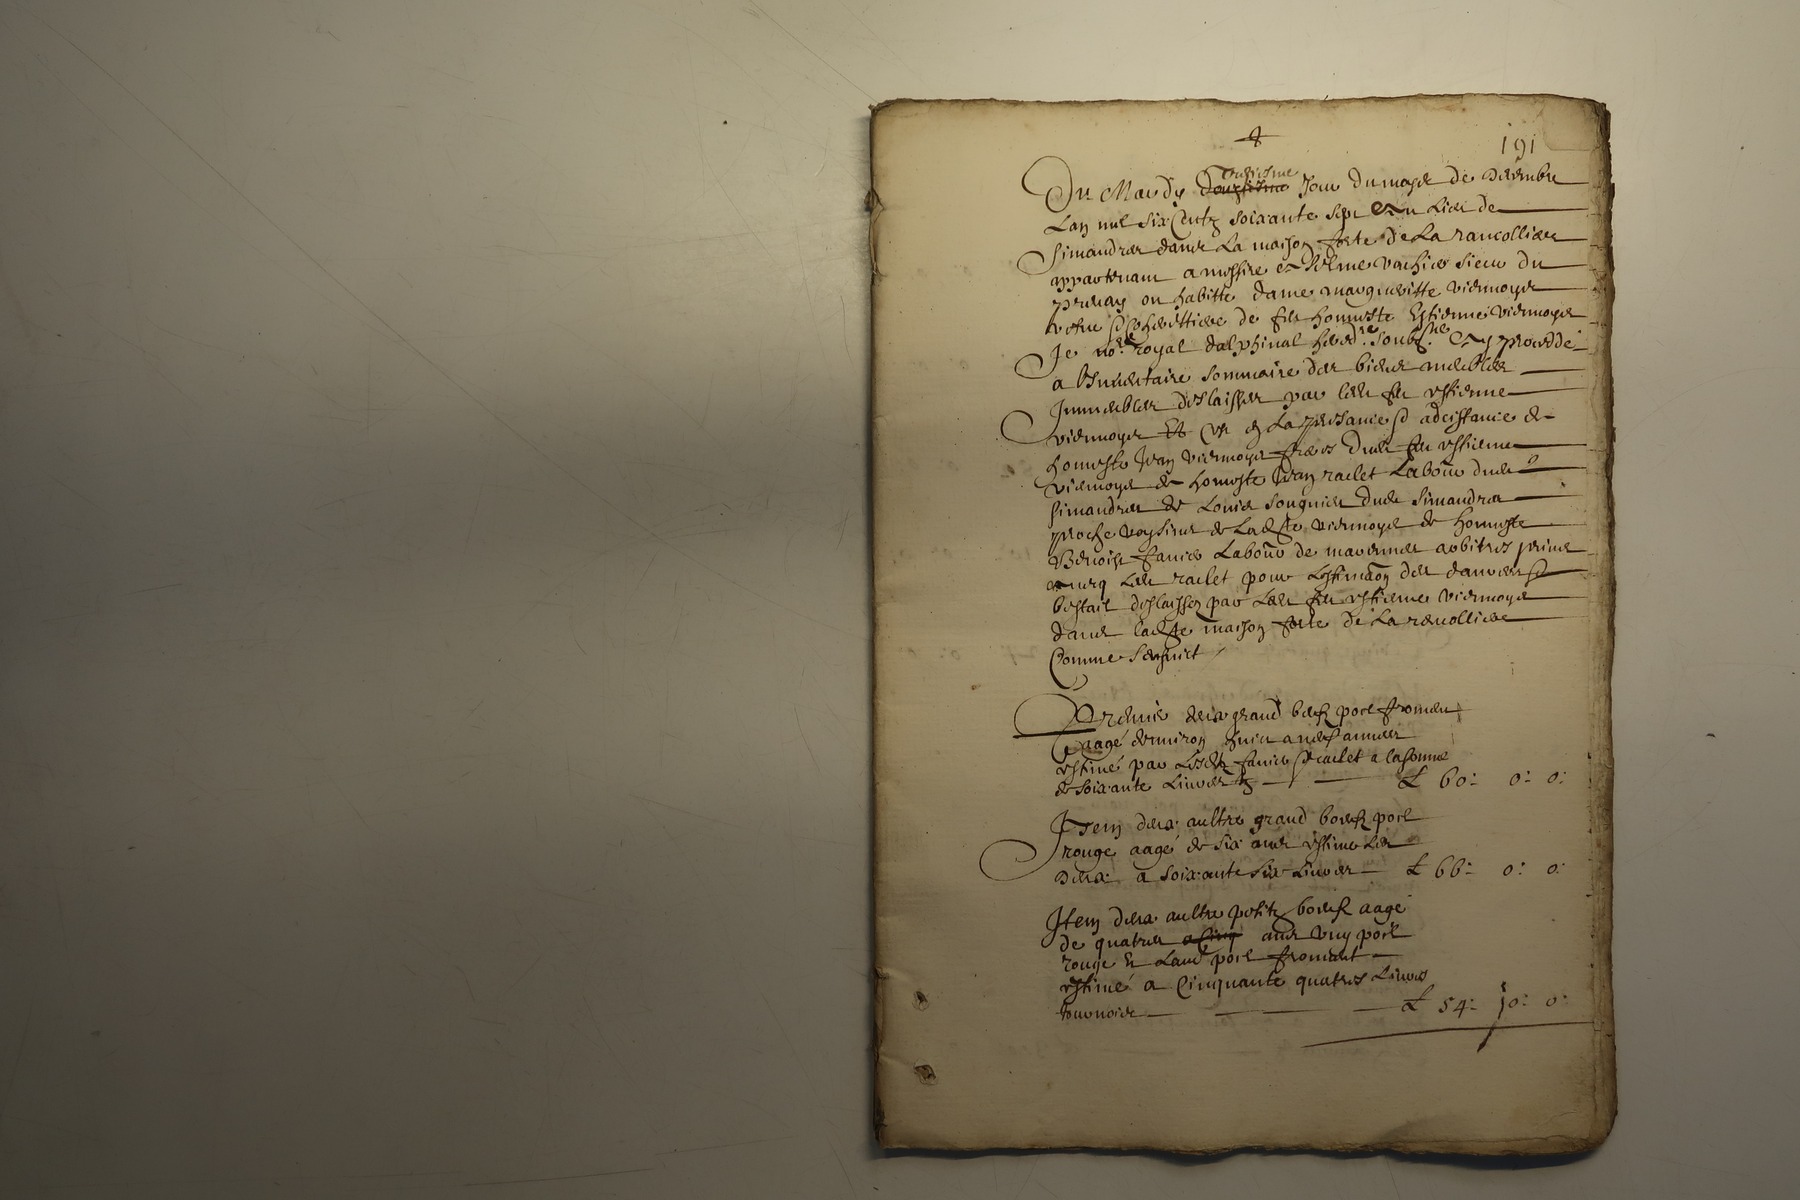 191
Du Mardy douziesme treiziesme Jour du moys de decembre
Lan mil six Centz soixante sept en Lieu de
Simandres dans La maison forte de La rancolliere
appartenant a messire vachier sieur du
ou habitte dame margueritte viennoys
vefve et heritiere de feu honneste Estienne viennoys
Je no.re royal dalphinal hered.re soubs.ne ay procedé
a Linventaire sommaire des biens meubles
Immeubles deslaisses par led feu estienne
viennoys en La presance et adcistance de
honneste Jean viennoys frere dud feu estienne
viennoys de honneste Jean raclet Labour dud
Simandres de Louis dud Simandres
proche voysins de Ladte viennoys de honneste
Benoist Janier Labour de marennes arbitres prins
avecq led raclet pour Lestimaon des danrees et
bestail deslaisses par led feu estienne viennoys
dans ladte maison forte de La rancolliere
Comme sensuict
Premis deux grand boeufz poil froment
aagé denviron huict a neuf annees
estimé par Lesd Janier et raclet a la somme
de soixante Livres tz ₤ 60: 0: 0:
Item deux aultre grand boeufz poil
rouge aagé de six ans estime Les
deux a soixante six Livres ₤ 66: 0: 0:
Item deux aultre petitz boeufz aagé
de quatres a Cinq ans Vng poil
rouge et Laud poil froment
estimé a Cinquante quatres Livres
tournois ₤ 54: 10: 0: